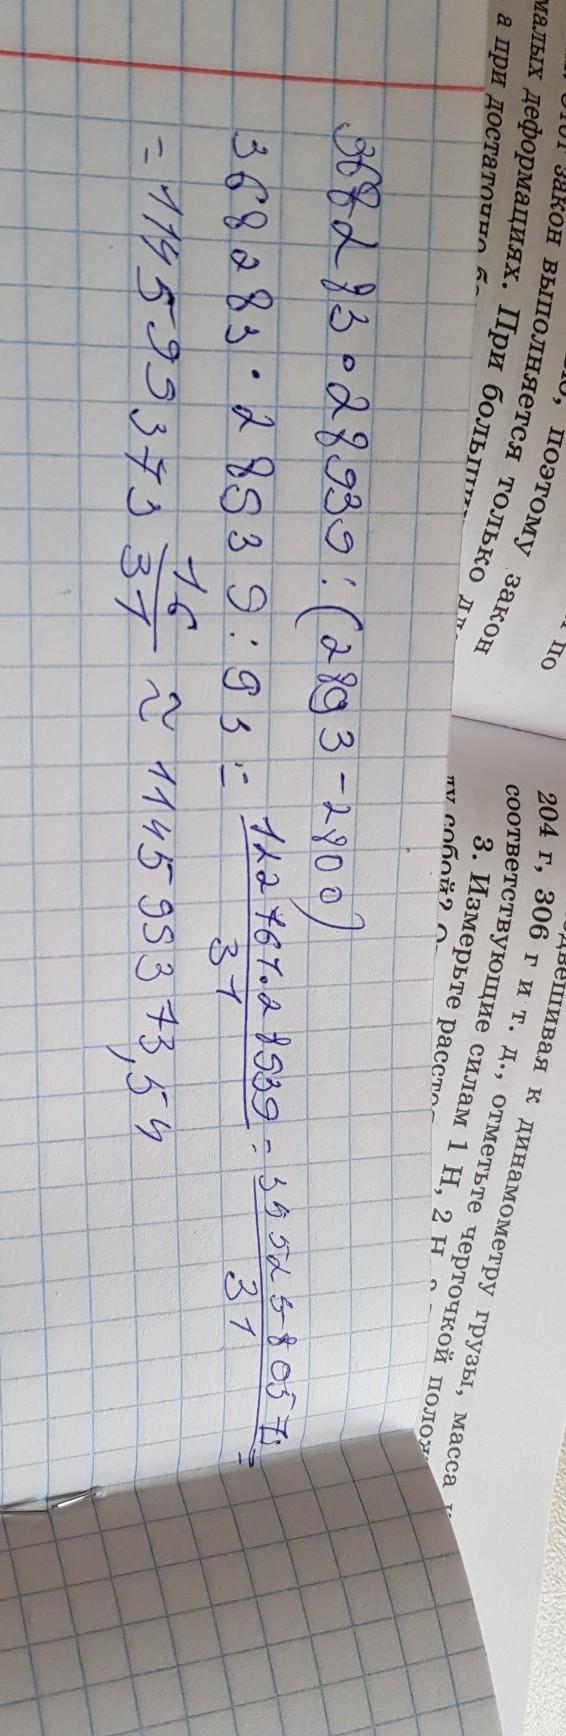 Этот закон выполняется только
малых деформациях. При больши
а при достаточно
поэтому закон
по
подвешивая к динамометру грузы, масса
204 г, 306 г и т. д., отметьте черточкой полож
соответствующие силам 1 Н, 2 Н
3. Измерьте расстоя
ду собой?
368283·28939:(2893-2800)
368283·28939:93= 122761·28939/31 = 3552580579/31 =
=114599373 16/31 ≈ 114599373,54